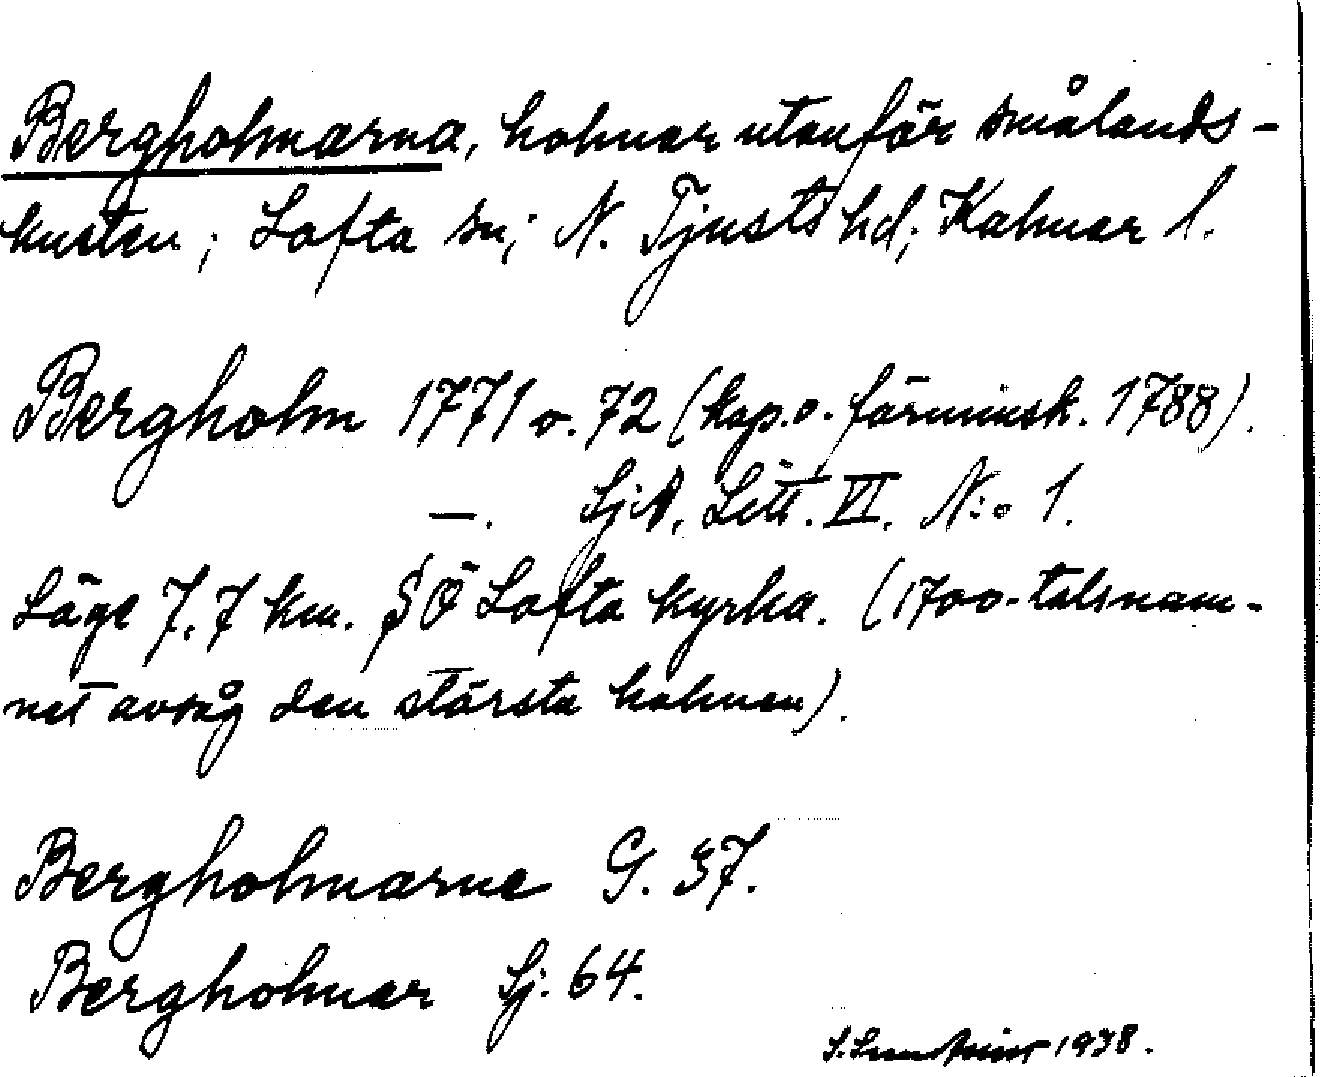 Bergholmarna, holmar utanför smålands-
kusten; Lofta sn; N. Tjusts hd; Kalmar l.
Bergholm 1771 o. 72 (kop. o. förminsk. 1788).
—. SjA. Litt. VI. N:o 1.
Läge 7.7 km. SÖ Lofta kyrka. (1700-talsnam-
net avsåg den största holmen).
Bergholmarne G. 37.
Bergholmar Sj. 64.
1938.